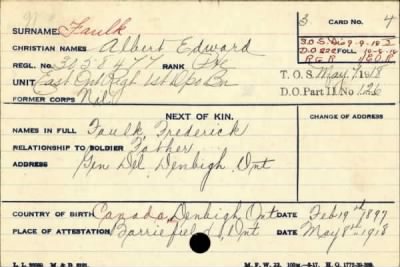 S. CARD NO. 4
SURNAME: Faulk
CHRISTIAN NAMES Albert Edward
REGL. NO. 3058477 RANK Pte
UNIT East Ont Regt 1st Dpo Bn
T.O.S. May 7 1918
D.O. Part II. No 126
FORMER CORPS Nil
NEXT OF KIN.
CHANGE OF ADDRESS
NAMES IN FULL Faulk, Frederick
RELATIONSHIP TO SOLDIER Father
ADDRESS Gen Del Denbigh, Ont
COUNTRY OF BIRTH Canada, Denbigh, Ont DATE Feb 19th 1897
PLACE OF ATTESTATION Barriefield, Ont DATE May 8th 1918
M. F. W. 22.